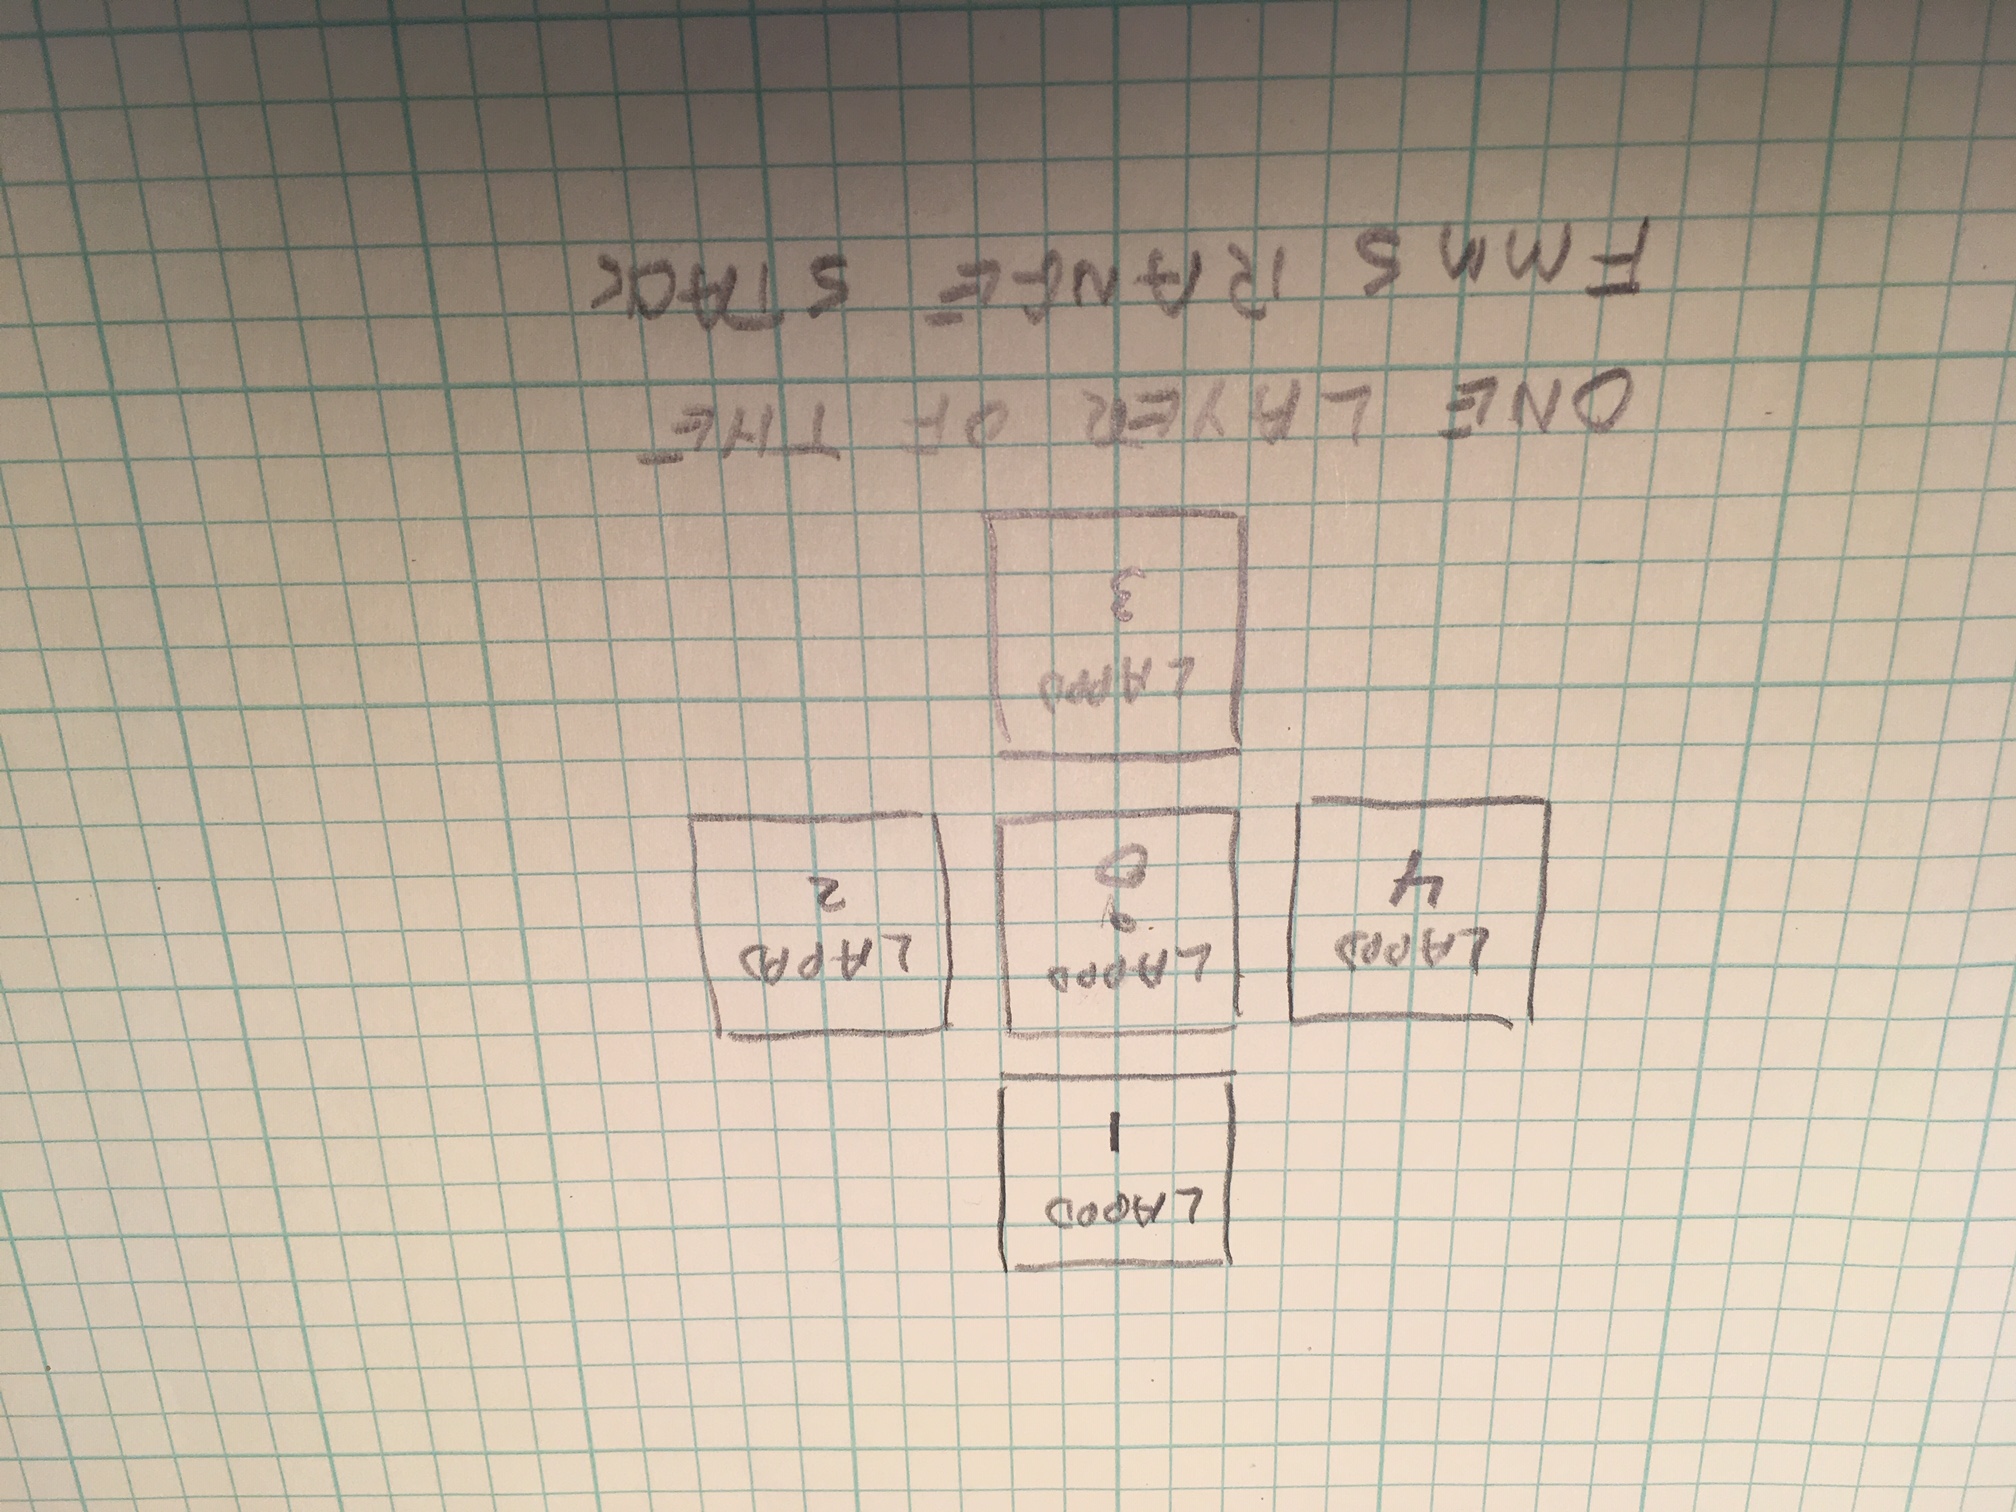 LAPPD
1
LAPPD
4
LAPPD
0
LAPPD
2
LAPPD
3
ONE LAYER OF THE
RANGE STACK